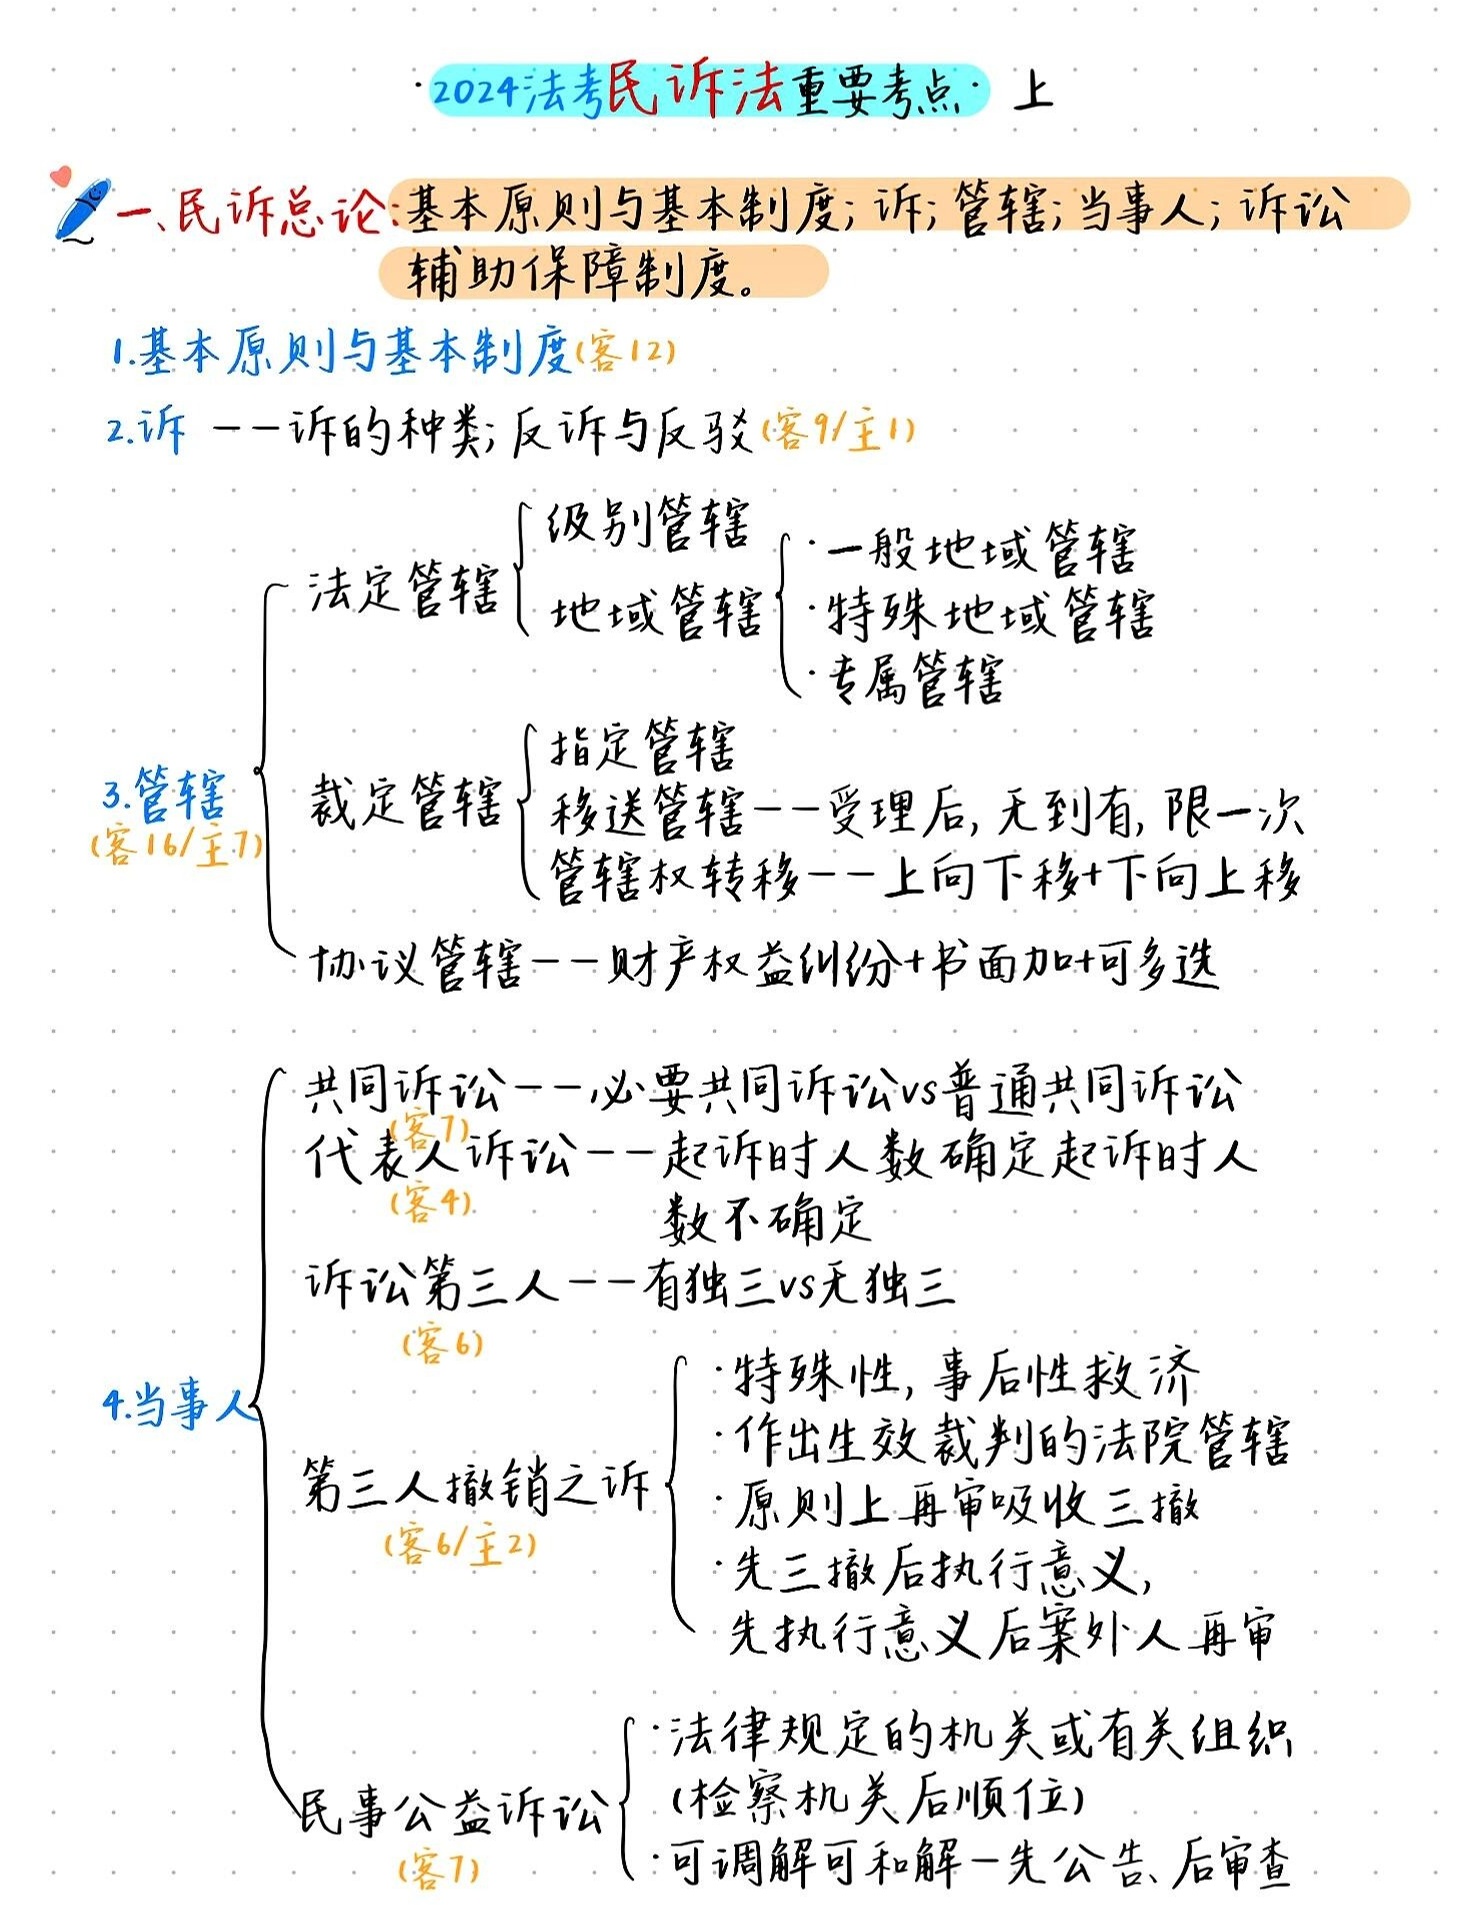 ·2024法考民诉法重要考点· 上
一、民诉总论:基本原则与基本制度;诉;管辖;当事人;诉讼
辅助保障制度。
1.基本原则与基本制度(客12)
2.诉 ——诉的种类;反诉与反驳(客9/主1)
3.管辖
(客16/主7)
法定管辖
级别管辖
地域管辖
·一般地域管辖
·特殊地域管辖
·专属管辖
裁定管辖
指定管辖
移送管辖——受理后,无到有,限一次
管辖权转移——上向下移+下向上移
协议管辖——财产权益纠纷+书面加+可多选
4.当事人
共同诉讼——必要共同诉讼vs普通共同诉讼
(客7)
代表人诉讼——起诉时人数确定起诉时人
数不确定
(客4)
诉讼第三人——有独三vs无独三
(客6)
第三人撤销之诉
(客6/主2)
·特殊性,事后性救济
·作出生效裁判的法院管辖
·原则上再审吸收三撤
·先三撤后执行意义,
先执行意义后案外人再审
民事公益诉讼
(客7)
·法律规定的机关或有关组织
(检察机关后顺位)
·可调解可和解—先公告、后审查